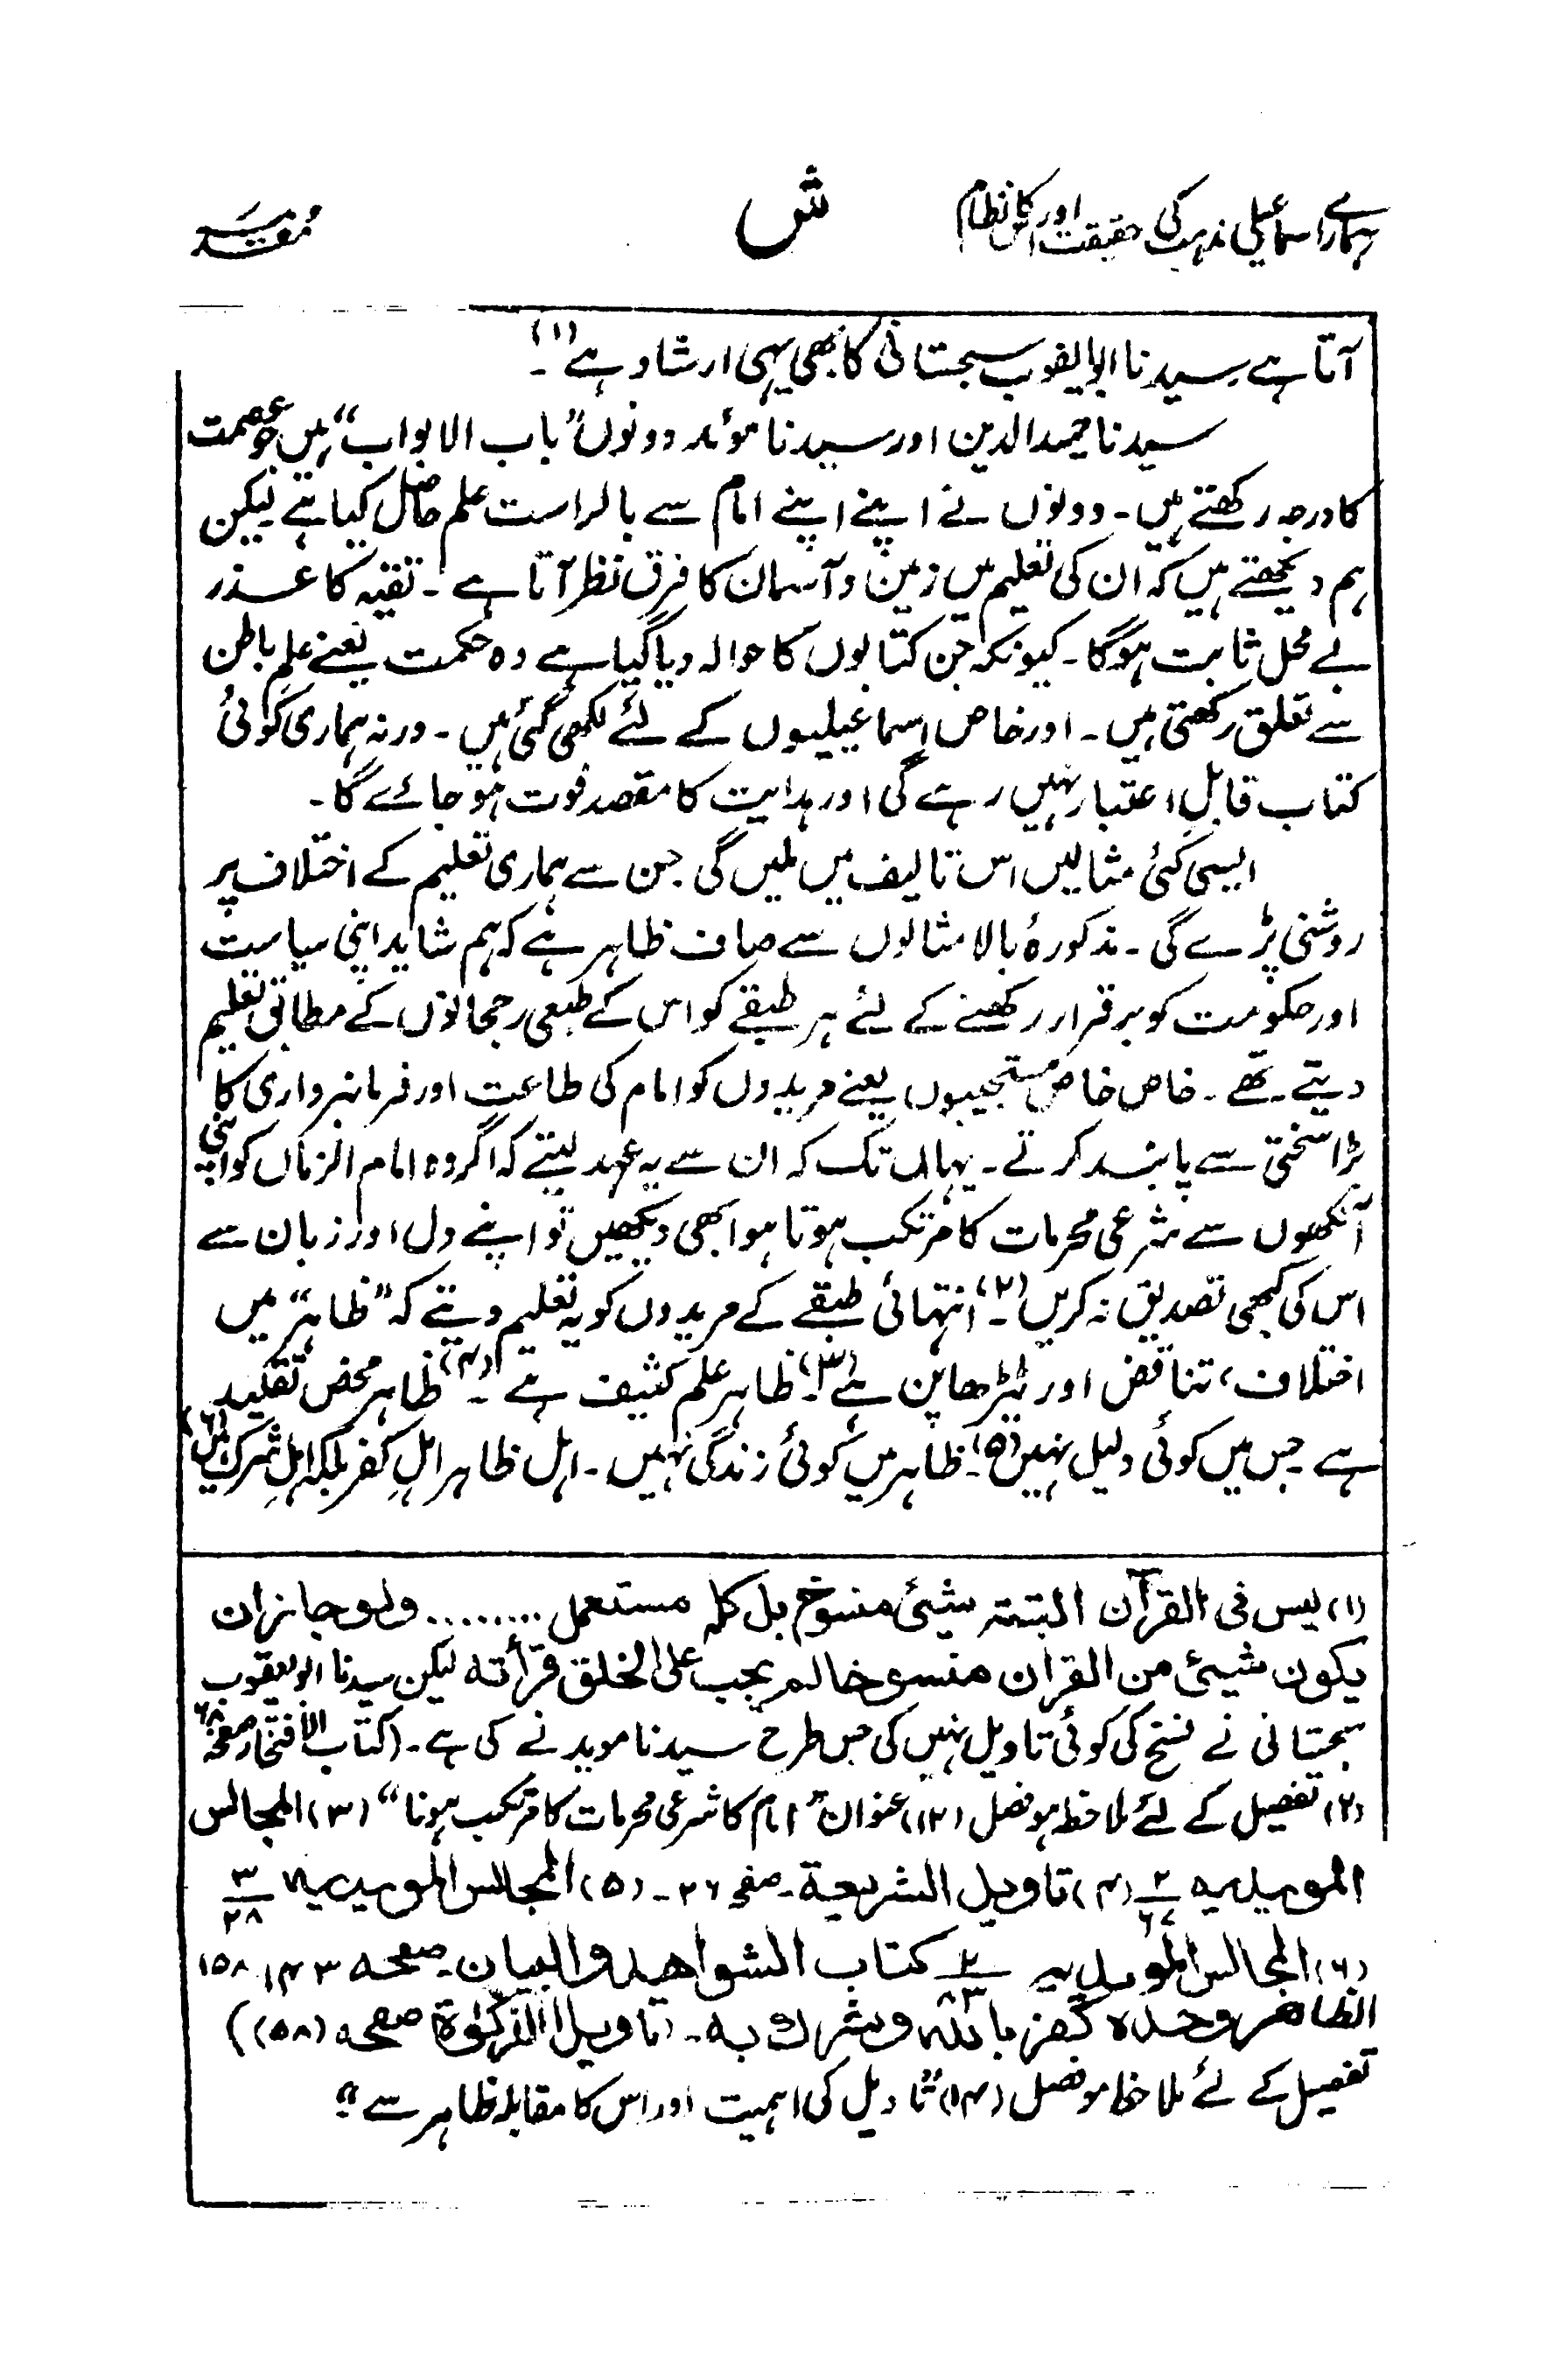 ہمارے اسماعیلی مذہب کی حقیقت اور اس کا نظام
ش
مُقدّمہ
آتا ہے۔ سیدنا ابو یعقوب سجستانی کا بھی یہی ارشاد ہے (۱)۔
سیدنا حمید الدین اور سیدنا مؤید دونوں ”باب الابواب“ ہیں جو عصمت
کا درجہ رکھتے ہیں۔ دونوں نے اپنے اپنے امام سے بالراست علم حاصل کیا ہے لیکن
ہم دیکھتے ہیں کہ ان کی تعلیم میں زمین و آسمان کا فرق نظر آتا ہے۔ تقیہ کا عذر
بے محل ثابت ہوگا۔ کیونکہ جن کتابوں کا حوالہ دیا گیا ہے وہ حکمت یعنے علم باطن
سے تعلق رکھتی ہیں۔ اور خاص اسماعیلیوں کے لئے لکھی گئی ہیں۔ ورنہ ہماری کوئی
کتاب قابلِ اعتبار نہیں رہے گی اور ہدایت کا مقصد فوت ہو جائے گا۔
ایسی کئی مثالیں اس تالیف میں ملیں گی جن سے ہماری تعلیم کے اختلاف پر
روشنی پڑے گی۔ مذکورۂ بالا مثالوں سے صاف ظاہر ہے کہ ہم شاید اپنی سیاست
اور حکومت کو برقرار رکھنے کے لئے ہر طبقے کو اس کے طبعی رجحانوں کے مطابق تعلیم
دیتے تھے۔ خاص خاص مستجیبوں یعنے مریدوں کو امام کی طاعت اور فرمانبرواری کا
بڑا سختی سے پابند کرتے۔ یہاں تک کہ ان سے یہ عہد لیتے کہ اگر وہ امام الزماں کو اپنی
آنکھوں سے شرعی محرمات کا مرتکب ہوتا ہوا بھی دیکھیں تو اپنے دل اور زبان سے
اس کی کبھی تصدیق نہ کریں (۲)۔ انتہائی طبقے کے مریدوں کو یہ تعلیم دیتے کہ ”ظاہر“ میں
اختلاف، تناقض اور ٹیڑھاپن ہے (۳)۔ ظاہر علم کثیف ہے۔ (۴) ظاہر محض تقلید
ہے جس میں کوئی دلیل نہیں (۵)۔ ظاہر میں کوئی زندگی نہیں۔ اہل ظاہر اہلِ کفر بلکہ اہلِ شرک ہیں (۶)
(۱) لیس فی القرآن البتتہ شیئ منسوخ بل کلہ مستعمل ........ ولو جاز ان
یکون شیئ من القرآن منسوخا لم یجب علی الخلق قرأتہ لیکن سیدنا ابو یعقوب
سجستانی نے نسخ کی کوئی تاویل نہیں کی جس طرح سیدنا موید نے کی ہے۔ (کتاب الافتخار صفحہ ۶۸
(۲) تفصیل کے لئے ملاحظہ ہو فصل (۱۲) عنوان ”امام کا شرعی محرمات کا مرتکب ہونا“ (۳) المجالس
المویدیہ ۲/۶۷ (۴) تاویل الشریعة۔ صفحہ ۲۶۔ (۵) المجالس المویدیہ ۳/۲۸
(۶) المجالس المویدیہ ۲/۸۳ کتاب الشواھد والبیان۔ صفحہ ۱۴۳، ۱۵۸
الظاھر وحدہ کفر باللہ وشرک بہ۔ (تاویل الزکوٰة صفحہ (۵۸))
تفصیل کے لئے ملاحظہ ہو فصل (۱۴) ”تاویل کی اہمیت اور اس کا مقابلہ ظاہر سے“